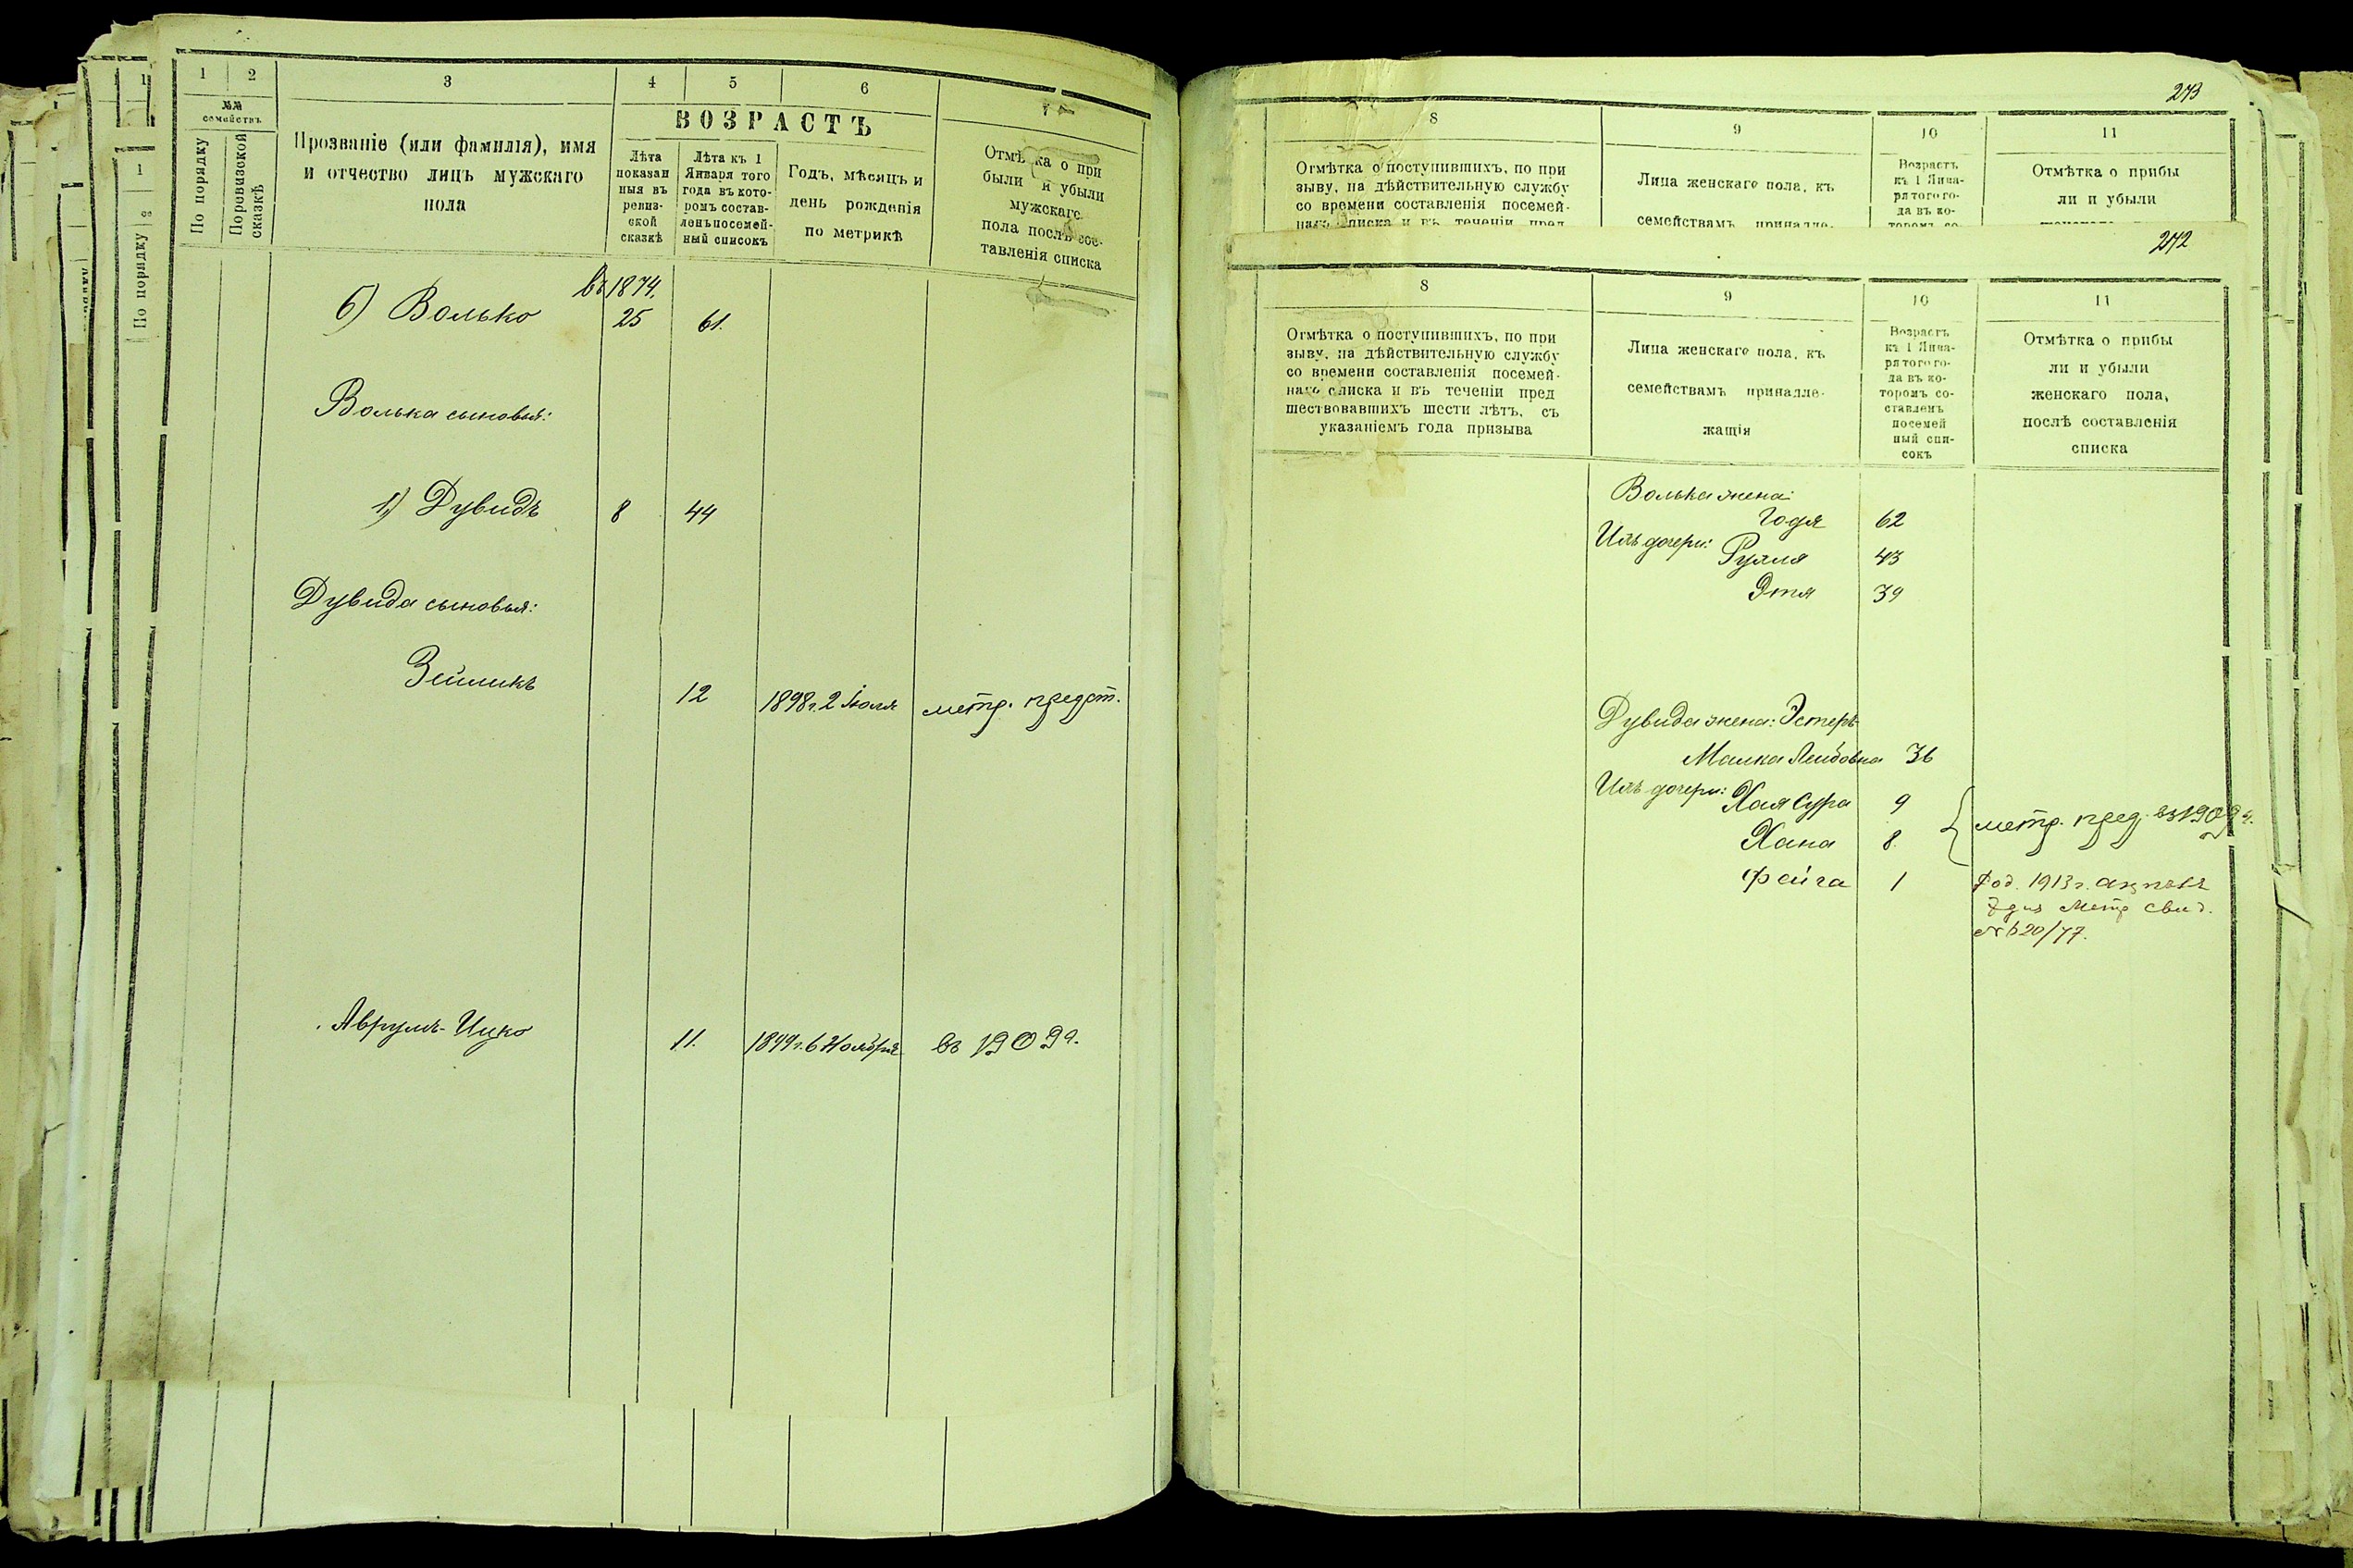 1 2 3 4 5 6
№№ семействъ.
По порядку
По ревизской сказкѣ
Прозваніе (или фамилія), имя
и отчество лицъ мужскаго
пола
ВОЗРАСТЪ
Лѣта
показан
ныя въ
ревиз-
ской
сказкѣ
Лѣта къ 1
Января того
года въ кото-
ромъ состав-
ленъ посемей-
ный списокъ
Годъ, мѣсяцъ и
день рожденія
по метрикѣ
Отмѣтка о при
были и убыли
мужскаго
пола послѣ сос-
тавленія списка
въ 1874.
6) Волько 25 61.
Волька сыновья:
1) Дувидъ 8 44
Дувида сыновья:
Зейликъ 12 1898 г. 2 Іюля метр. предст.
Аврумъ-Ицко 11. 1899 г. 6 Ноября въ 1909 г.
273
8 9 10 11
Отмѣтка о поступившихъ, по при
зыву, на дѣйствительную службу
со времени составленія посемей-
наго списка и въ теченіи пред
Лица женскаго пола, къ
семействамъ принадле-
Возрастъ
къ 1 Янва-
ря того го-
да въ ко-
торомъ со-
Отмѣтка о прибы
ли и убыли
272
8 9 10 11
Отмѣтка о поступившихъ, по при
зыву, на дѣйствительную службу
со времени составленія посемей-
наго списка и въ теченіи пред
шествовавшихъ шести лѣтъ, съ
указаніемъ года призыва
Лица женскаго пола, къ
семействамъ принадле-
жащія
Возрастъ
къ 1 Янва-
ря того го-
да въ ко-
торомъ со-
ставленъ
посемей
ный спи-
сокъ
Отмѣтка о прибы
ли и убыли
женскаго пола,
послѣ составленія
списка
Волька жена:
Годя 62
Ихъ дочери: Рухля 43
Этя 39
Дувида жена: Эстеръ-
Малка Лейбовна 36
Ихъ дочери: Хая Сура 9
метр. пред. въ 1909 г.
Хана 8.
Фейга 1 род. 1913 г.
Метр свид.
№ 620/77.